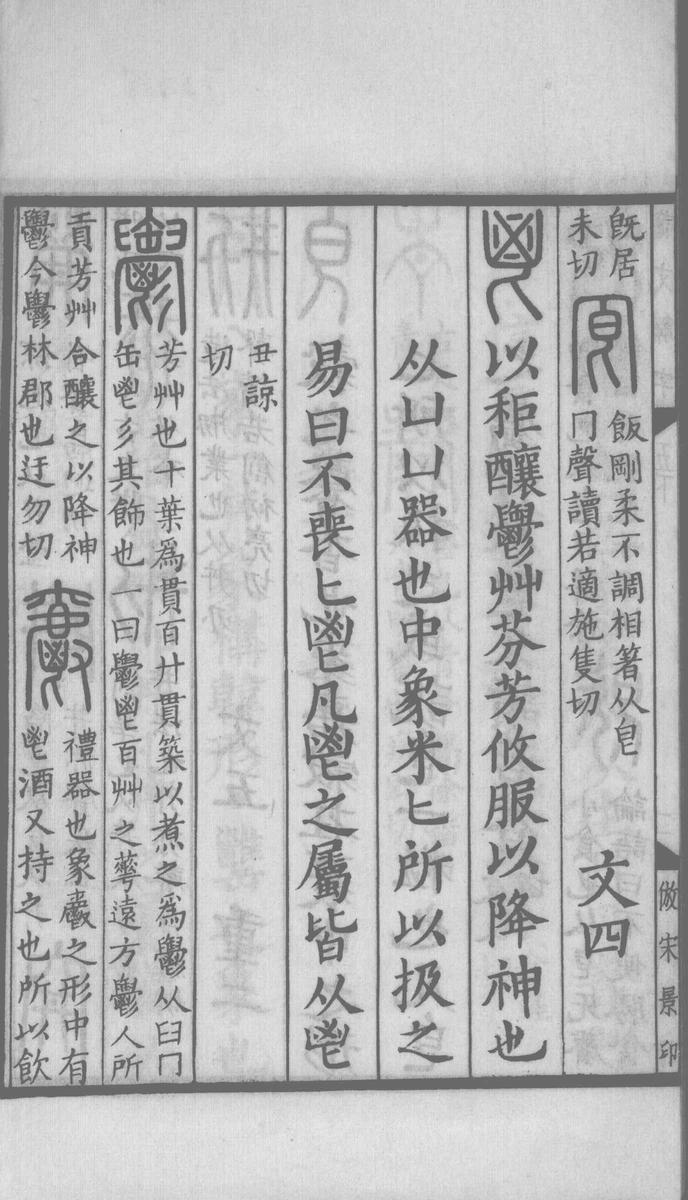 既居
未切
飯剛柔不調相箸从皀
冂聲讀若適施隻切
文四
以秬釀鬱艸芬芳攸服以降神也
从凵凵器也中象米匕所以扱之
易曰不喪匕鬯凡鬯之屬皆从鬯
丑諒
切
芳艸也十葉爲貫百廾貫築以煑之爲鬱从臼冂
缶鬯彡其飾也一曰鬱鬯百艸之華遠方鬱人所
貢芳艸合釀之以降神
鬱今鬱林郡也迂勿切
禮器也象爵之形中有
鬯酒又持之也所以飲
倣宋景印